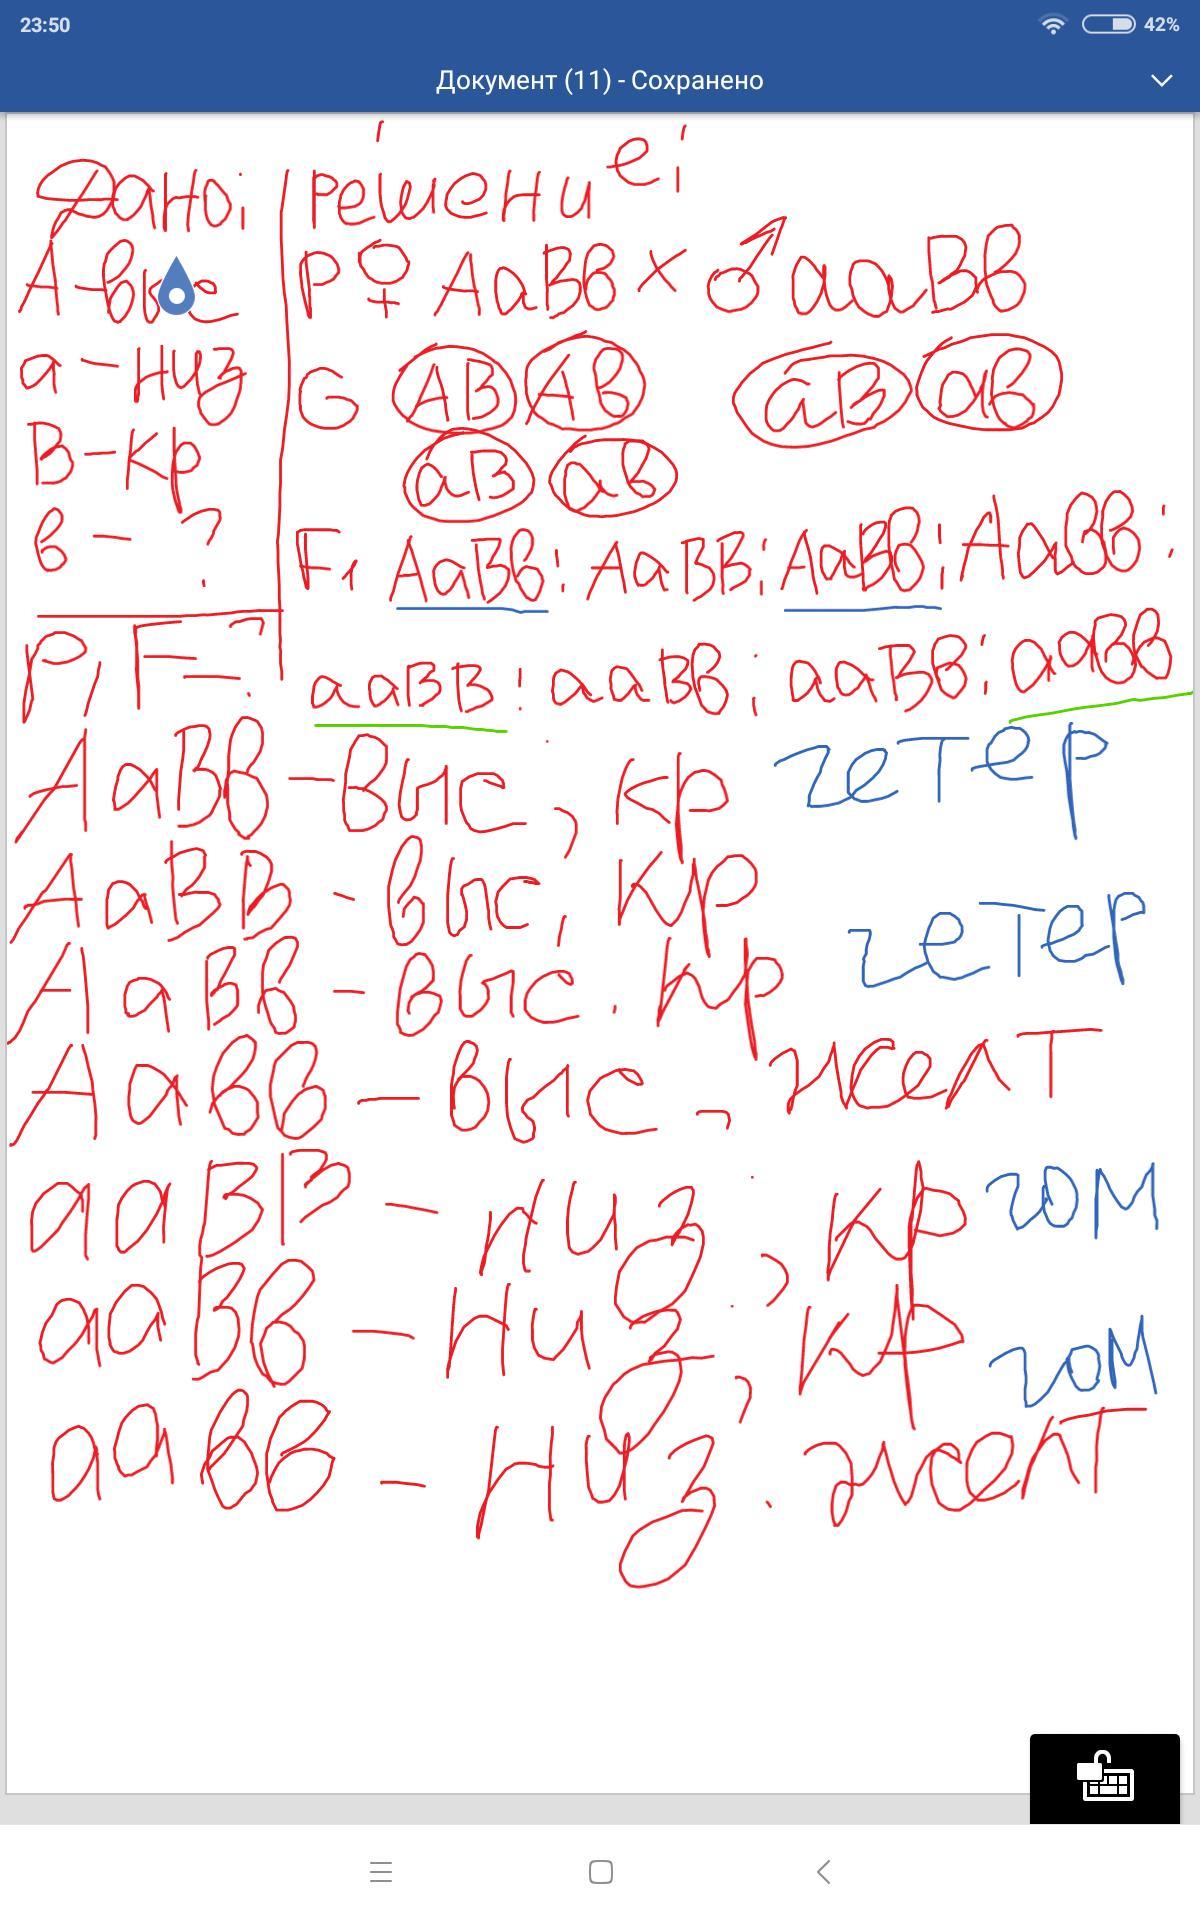 23:50 42%
Документ (11) - Сохранено
Дано: Решение:
А-выс Р ♀ АаВв × ♂ ааВв
а-низ G АВ Ав аВ ав
В-кр аВ ав
в-? F1 АаВв: АаВВ: АаВв: Аавв:
Р, F=? ааВВ: ааВв: ааВв: аавв
АаВв-выс, кр гетер
АаВВ-выс, кр
АаВв-выс. кр гетер
Аавв-выс, желт
ааВВ-низ, кр гом
ааВв-низ, кр гом
аавв-низ. желт